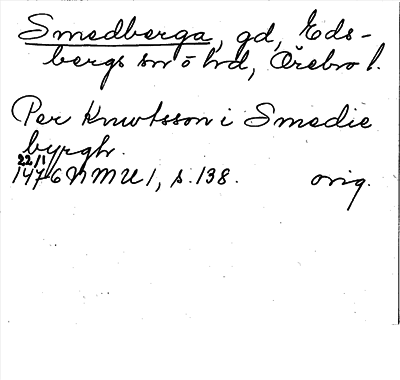 Smedberga, gd, Eds-
bergs sn o hrd, Örebro l.
Per Knutsson i Smedie
byrghr.
22/11
1476 NMU 1, s. 138. orig.